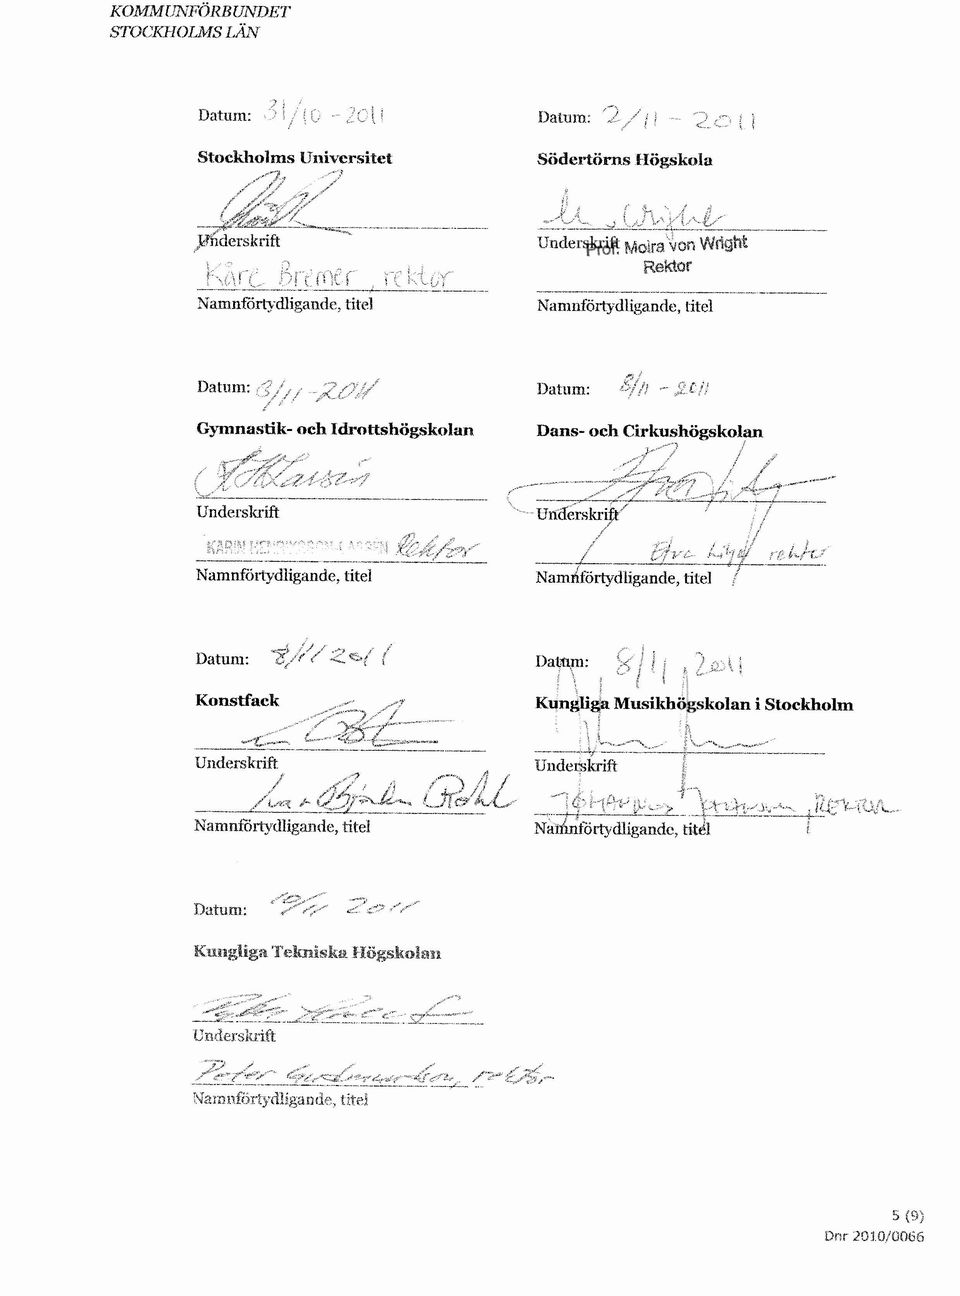 KOMMUNFÖRBUNDET
STOCKHOLMS LÄN
Datum: 31/10 - 2011
Stockholms Universitet
Underskrift
Kåre Bremer, rektor
Namnförtydligande, titel
Datum: 2/11 - 2011
Södertörns Högskola
M. v. Wright
Underskrift
Prof. Moira von Wright
Rektor
Namnförtydligande, titel
Datum: 8/11 - 2011
Gymnastik- och Idrottshögskolan
Larsén
Underskrift
KARIN HENRIKSSON-LARSÉN Rektor
Namnförtydligande, titel
Datum: 8/11 - 2011
Dans- och Cirkushögskolan
Underskrift
Efva Lilja rektor
Namnförtydligande, titel
Datum: 8/11 2011
Konstfack
Underskrift
Ivar Björkman
Namnförtydligande, titel
Datum: 8/11 2011
Kungliga Musikhögskolan i Stockholm
Underskrift
JOHANNES JOHANSSON, REKTOR
Namnförtydligande, titel
Datum: 10/11 2011
Kungliga Tekniska Högskolan
Peter
Underskrift
Peter Gudmundson, rektor
Namnförtydligande, titel
5 (9)
Dnr 2010/0066